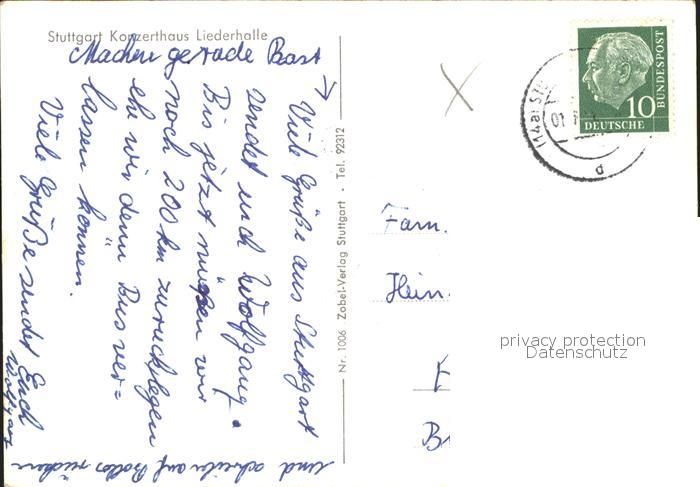 Stuttgart Konzerthaus Liederhalle
Machen gerade Rast
Viele Grüße aus Stuttgart
sendet euch Wolfgang.
Bis jetzt müßen wir
noch 200 km zurücklegen
ehe wir denn Bus ver=
lassen können.
Viele Grüße sendet Euch
Wolfgang
und schreiben auf
Nr. 1006 Zobel-Verlag Stuttgart · Tel. 92312
10
DEUTSCHE
BUNDESPOST
(14a) ST
01
d
Fam.
Hein
Br
privacy protection
Datenschutz